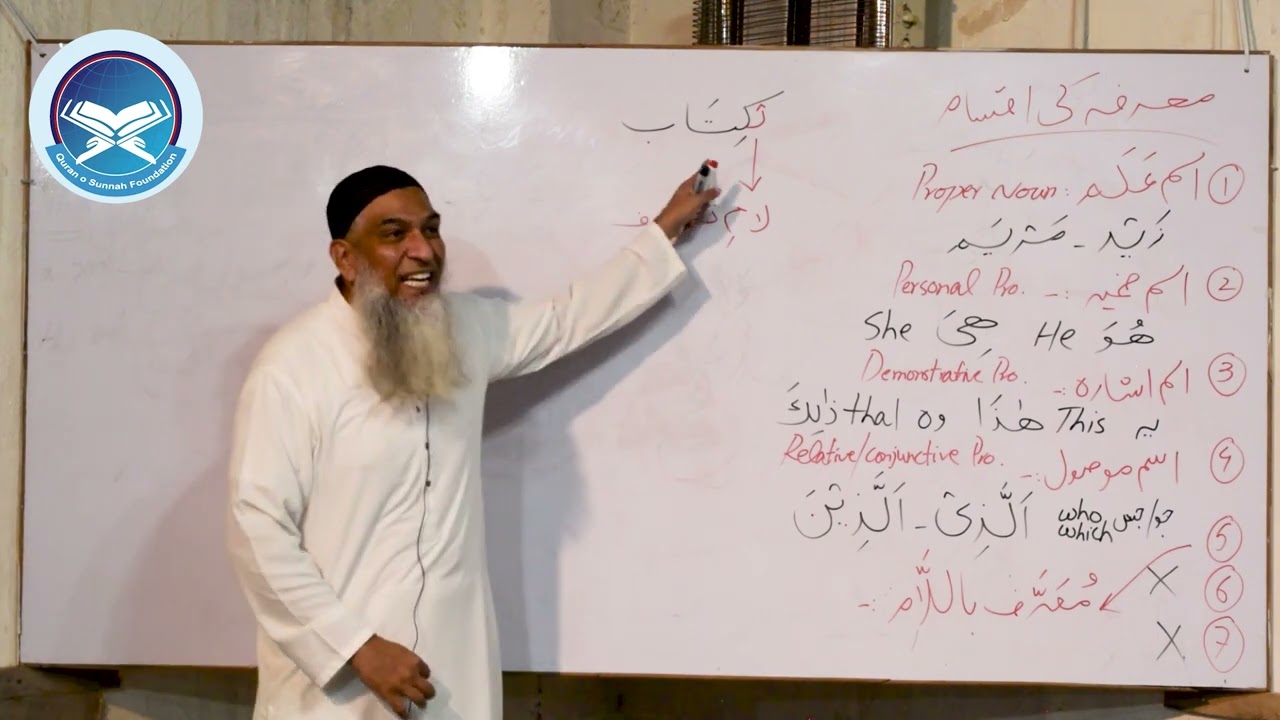 Quran o Sunnah Foundation
معرفہ کی اقسام
① اسم عَلَم : Proper Noun
زَیْد - مَرْیَم
② اسم ضمیر :- Personal Pro.
ھُوَ He ھِیَ She
③ اسم اشارہ :- Demonstrative Pro.
یہ This ھٰذَا وہ that ذٰلِكَ
④ اسم موصول :- Relative/conjunctive Pro.
جو/جس who which اَلَّذِیْ - اَلَّذِیْنَ
⑤
⑥ X مُعَرَّف بِاللَّام :-
⑦ X
کِتَاب
لامِ